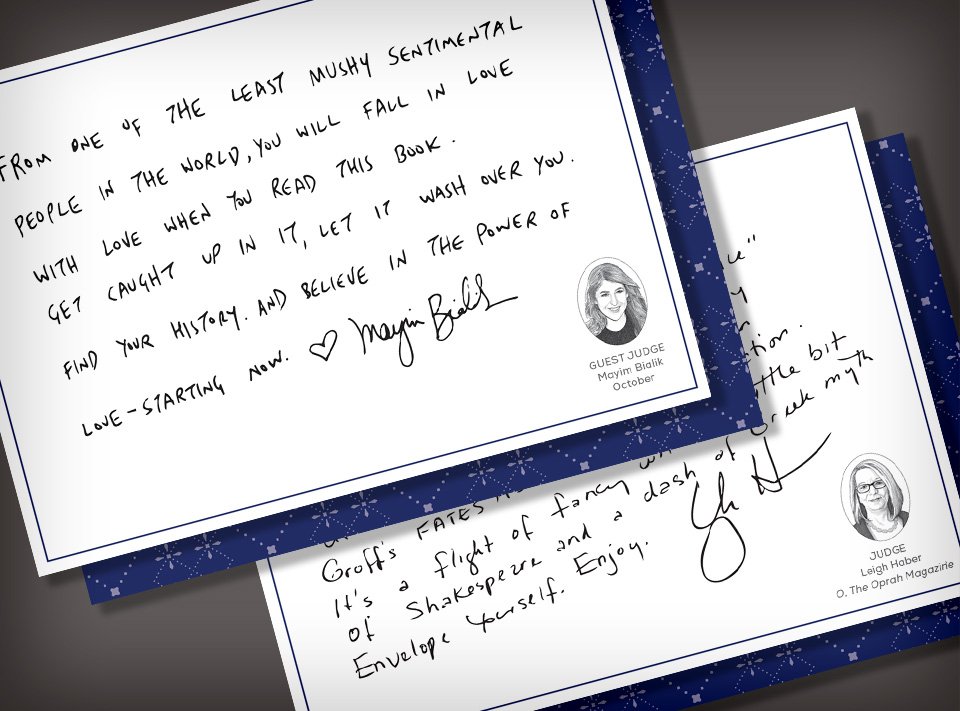 FROM ONE OF THE LEAST MUSHY SENTIMENTAL
PEOPLE IN THE WORLD, YOU WILL FALL IN LOVE
WITH LOVE WHEN YOU READ THIS BOOK.
GET CAUGHT UP IN IT, LET IT WASH OVER YOU.
FIND YOUR HISTORY. AND BELIEVE IN THE POWER OF
LOVE-STARTING NOW. ♡ Mayim Bialik
GUEST JUDGE
Mayim Bialik
October
Groff's FATES
It's a flight of fancy ttle bit
of Shakespeare and a dash of Greek myth
Envelope Yourself. Enjoy.
JUDGE
Leigh Haber
O. The Oprah Magazine